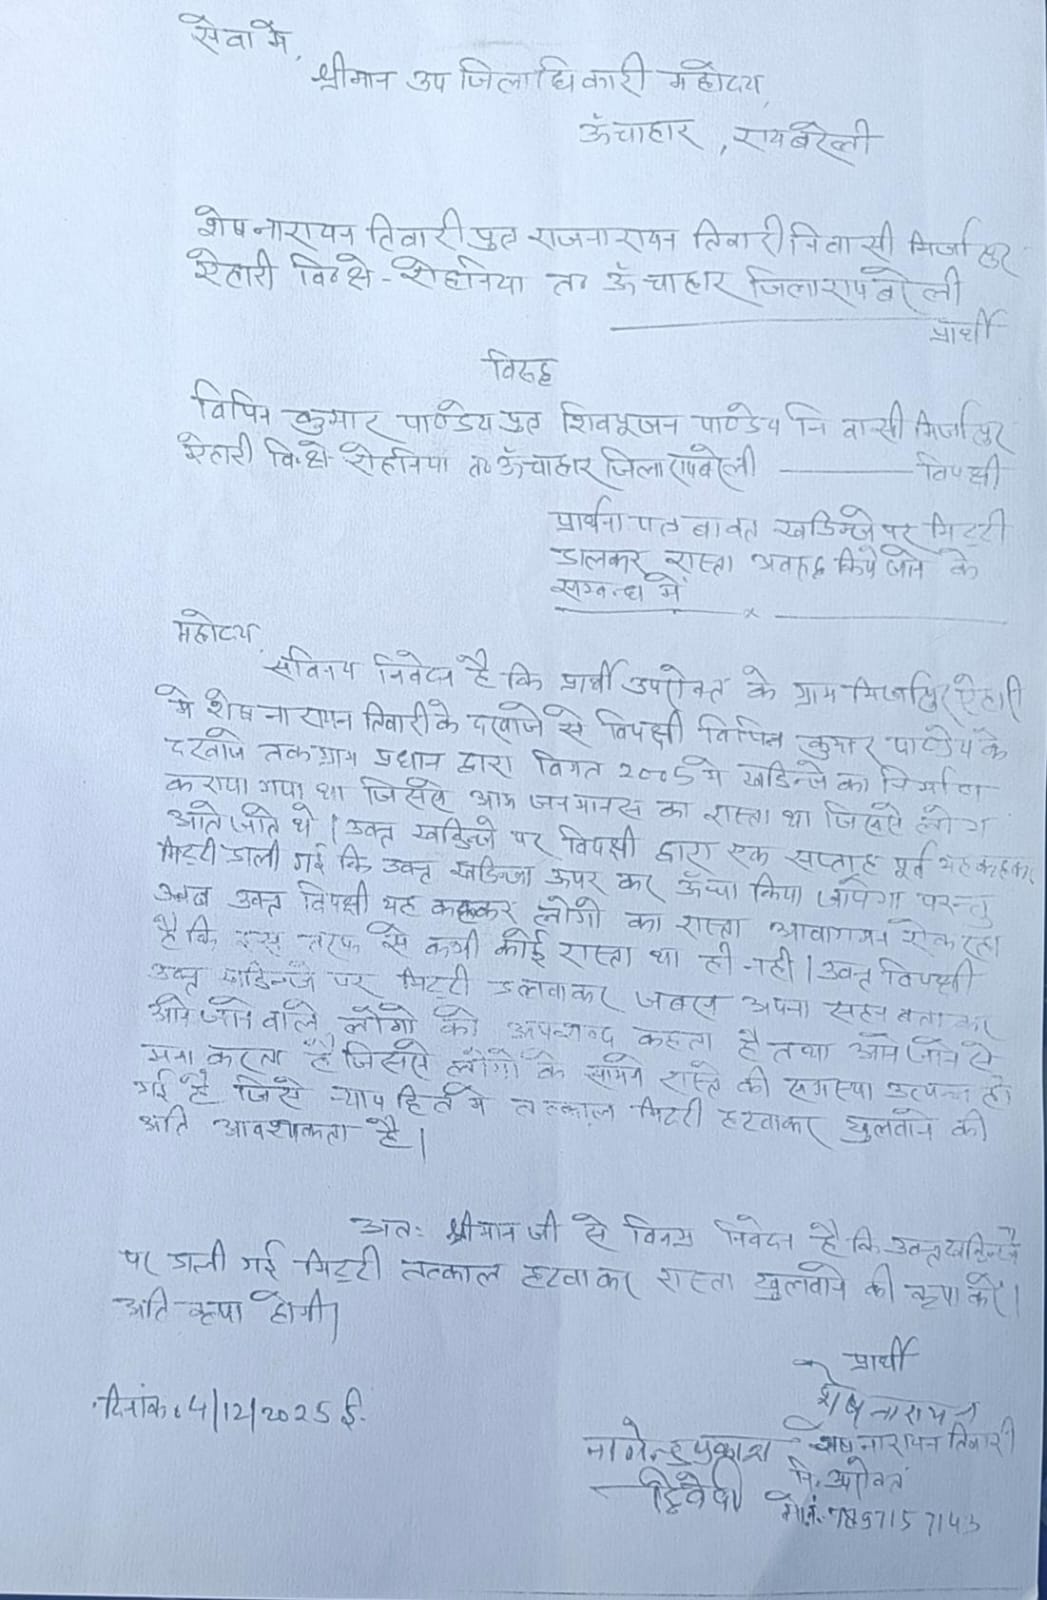 सेवा में,
श्रीमान उप जिलाधिकारी महोदय,
ऊँचाहार, रायबरेली
शेषनारायन तिवारी पुत्र राजनारायन तिवारी निवासी मिर्जापुर
ऐहारी वि० क्षे०-रोहनिया त० ऊँचाहार जिला रायबरेली
प्रार्थी
विरुद्ध
विपिन कुमार पाण्डेय पुत्र शिवभूजन पाण्डेय निवासी मिर्जापुर
ऐहारी वि. क्षे. रोहनिया त० ऊँचाहार जिला रायबरेली विपक्षी
प्रार्थना पत्र बावत खडिन्जे पर मिट्टी
डालकर रास्ता अवरुद्ध किये जाने के
सम्बन्ध में
महोदय,
सविनय निवेदन है कि प्रार्थी उपरोक्त के ग्राम मिर्जापुर ऐहारी
मे शेष नारायन तिवारी के दरवाजे से विपक्षी विपिन कुमार पाण्डेय के
दरवाजे तक ग्राम प्रधान द्वारा विगत 2005 मे खडिन्जे का निर्माण
कराया गया था जिससे आम जनमानस का रास्ता था जिससे लोग
आते जाते थे। उक्त खडिन्जे पर विपक्षी द्वारा एक सप्ताह पूर्व यह कहकर
मिट्टी डाली गई कि उक्त खडिन्जा ऊपर कर ऊँचा किया जायेगा परन्तु
अब उक्त विपक्षी यह कहकर लोगो का रास्ता आवागमन रोक रहा
है कि इस तरफ से कभी कोई रास्ता था ही नही। उक्त विपक्षी
उक्त खडिन्जे पर मिट्टी डलवाकर जबरन अपना सहन बताकर
आने जाने वाले लोगो को अपशब्द कहता है तथा आने जाने से
मना करता है जिससे लोगो के सामने रास्ते की समस्या उत्पन्न हो
गई है जिसे न्याय हित मे तत्काल मिट्टी हटवाकर खुलवाने की
अति आवश्यकता है।
अतः श्रीमान जी से विनम्र निवेदन है कि उक्त खडिन्जे
पर डाली गई मिट्टी तत्काल हटवाकर रास्ता खुलवाने की कृपा करें।
अति कृपा होगी।
प्रार्थी
शेष नारायन
दिनांक. 4/12/2025 ई.
नागेन्द्र प्रकाश शेष नारायन तिवारी
द्विवेदी नि. उपरोक्त
मो.नं. 7897157143